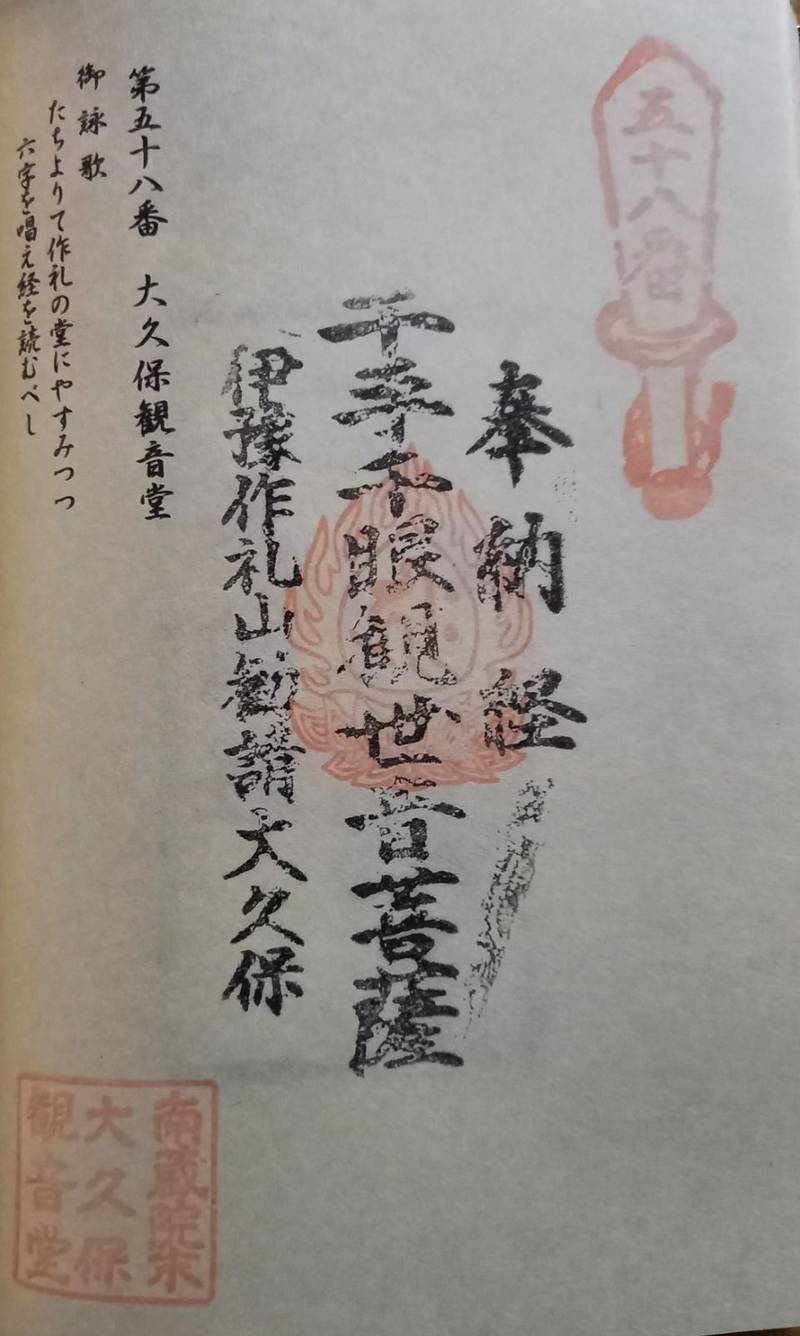 五十八番
奉納経
千手千眼観世音菩薩
伊豫作礼山勧請大久保
第五十八番 大久保観音堂
御詠歌
たちよりて作礼の堂にやすみつつ
六字を唱え経を読むべし
南蔵院末
大久保
観音堂